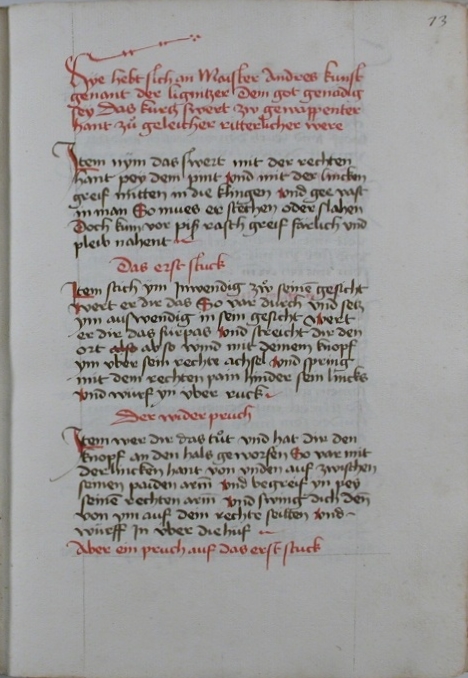 73
Hye hebt sich an Maister Andres kunst
genant der lignitzer Dem got genadig
sey Das kurtz swert zw gewappenter
hant zů geleicher ritterlicher were
Item nym das swert mit der rechten
hant pey dem pint vnd mit der lincken
greif mitten in die klingen vnd gee vast
in man So mues er stechen oder slahen
Doch kum vor piß rasch greif farlich vnd
pleib nahent
Das erst stuck
Item stich ym Inwendig zw seinē gesicht
wert er dir das So var durch vnd setz
ym auswendig in sein gesicht wert
er dir das fürpas vnd streicht dir den
ort also abso wind mit deinem knopf
ym vber sein rechte achsel vnd spring
mit dem rechten pain hinder sein lincks
vnd wurf yn vber ruck
Der wider pruch
Item wer dir das tůt vnd hat dir den
knopf an den hals geworfen So var mit
der lincken hant von vnden auf zwischen
seinen paiden arm vnd begreif yn pey
seinē rechten arm vnd swing dich den
von ym auf dem rechte seitten vnd
würff In vber die huf
Aber ein pruch auf das erst stuck